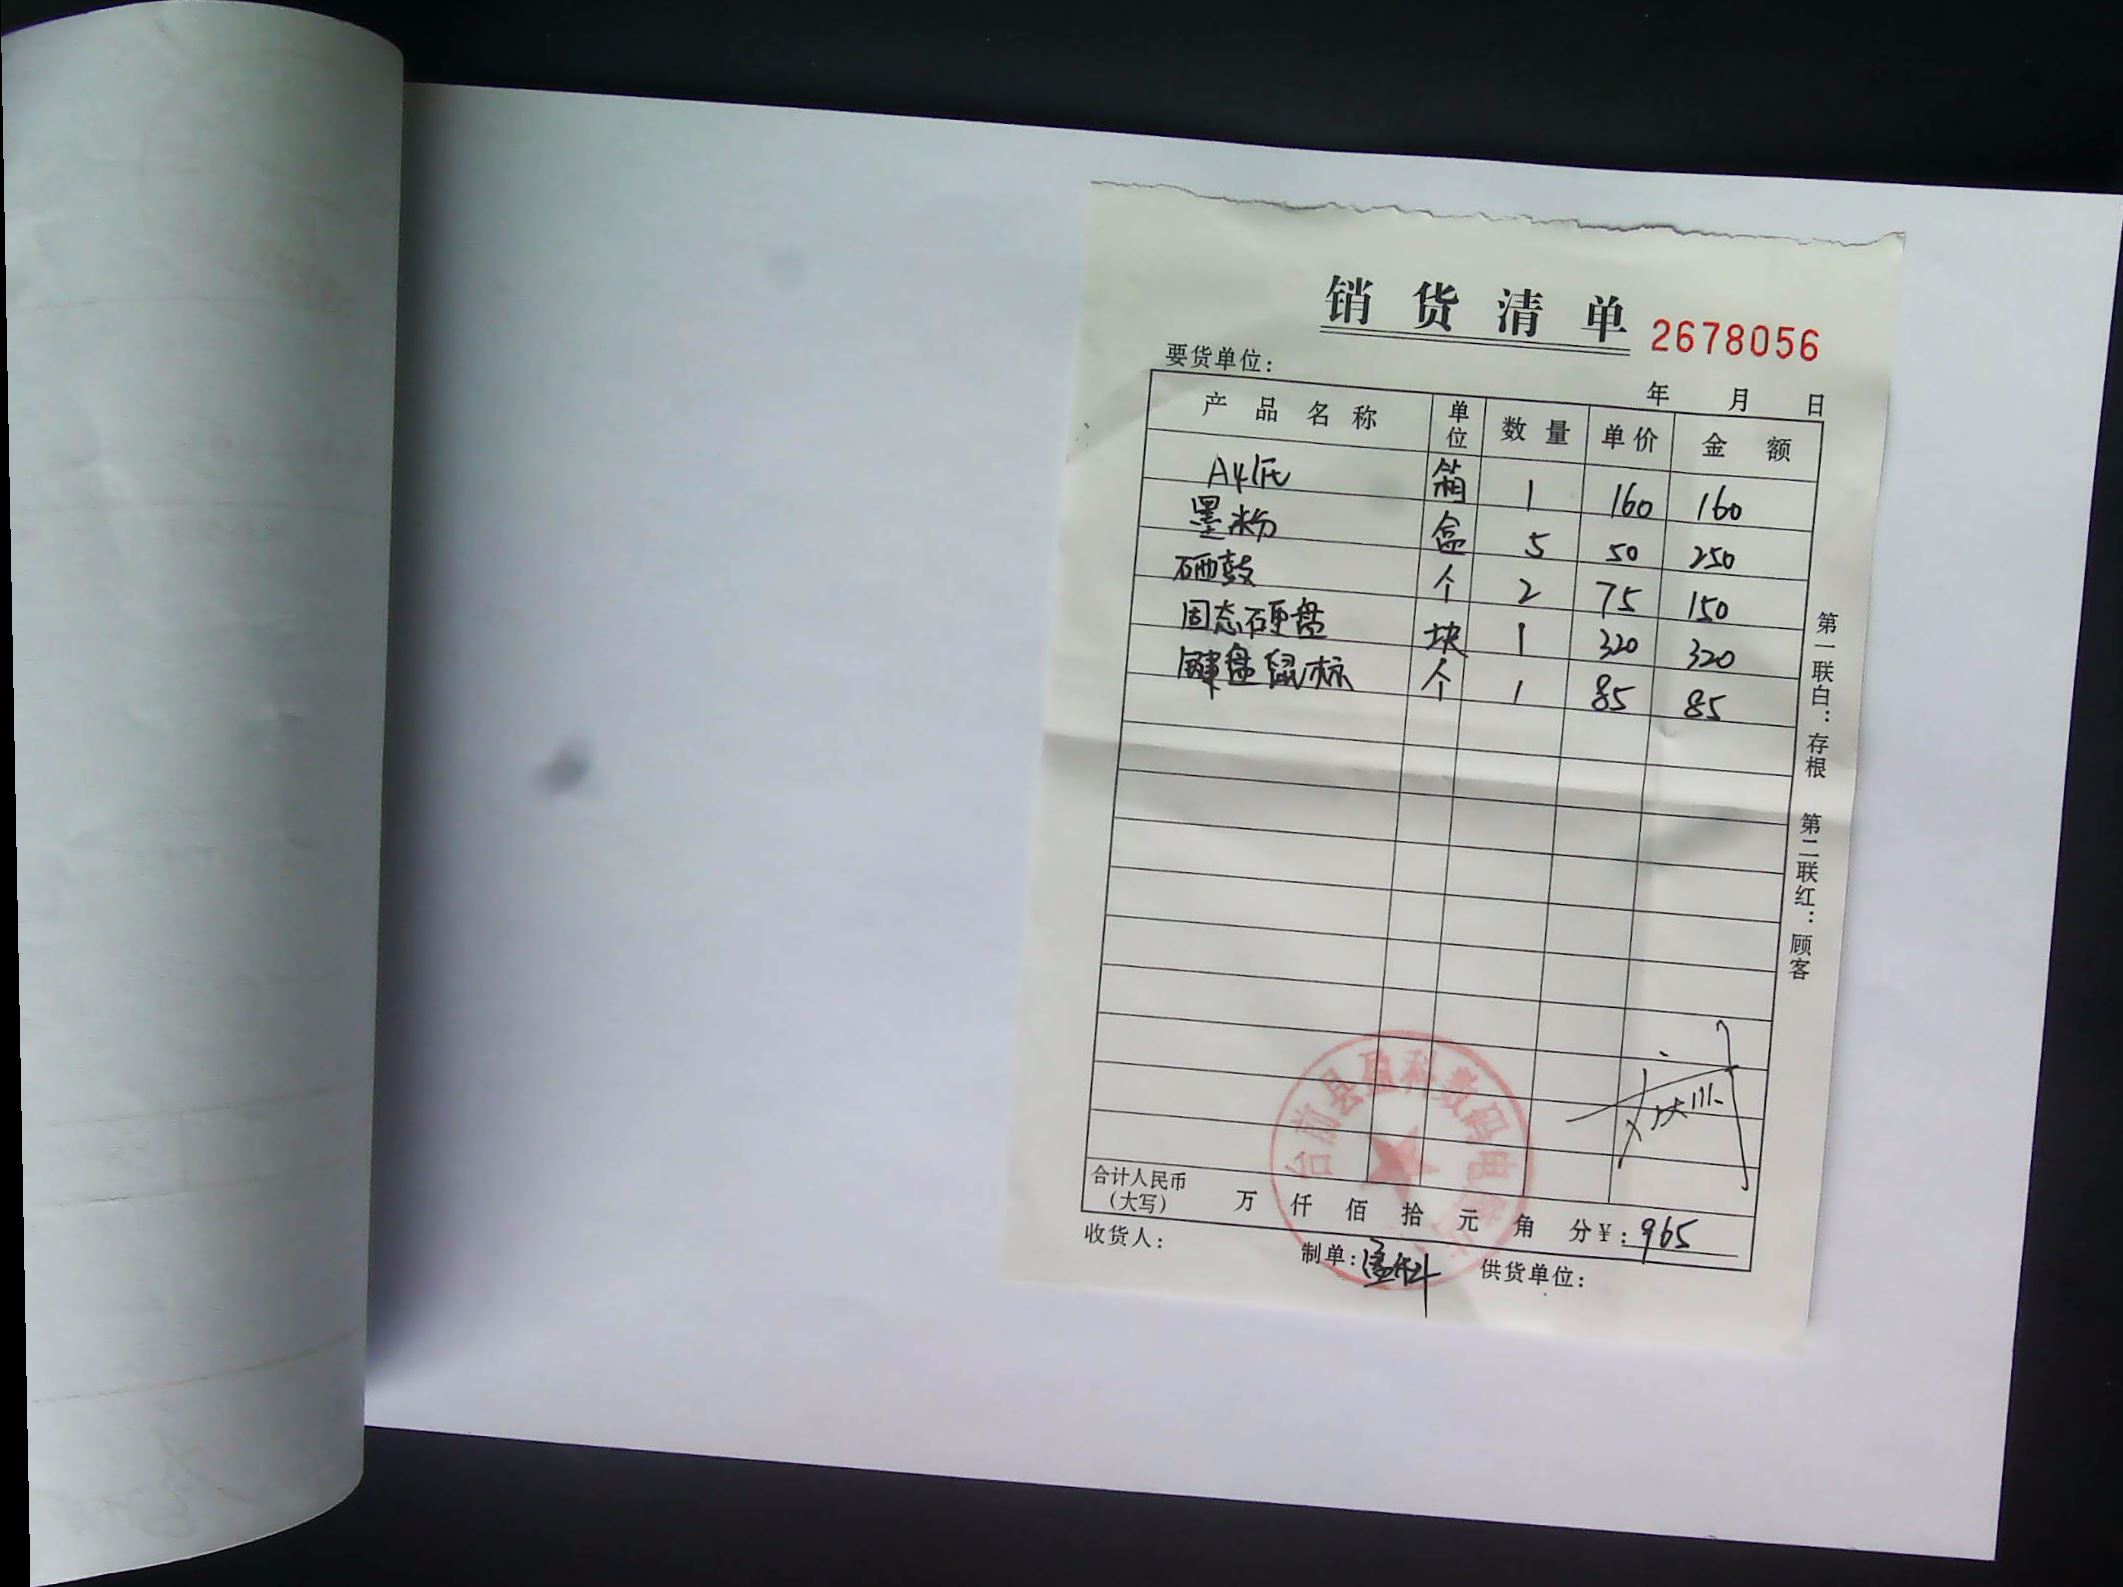 销货清单 2678056
要货单位：
年 月 日
产品名称 单位 数量 单价 金额
A4纸 箱 1 160 160
墨粉 盒 5 50 250
硒鼓 个 2 75 150
固态硬盘 块 1 320 320
键盘鼠标 个 1 85 85
第一联白：存根 第二联红：顾客
台前县盈科数码电
合计人民币（大写） 万 仟 佰 拾 元 角 分 ¥：965
收货人： 制单：盈科 供货单位：